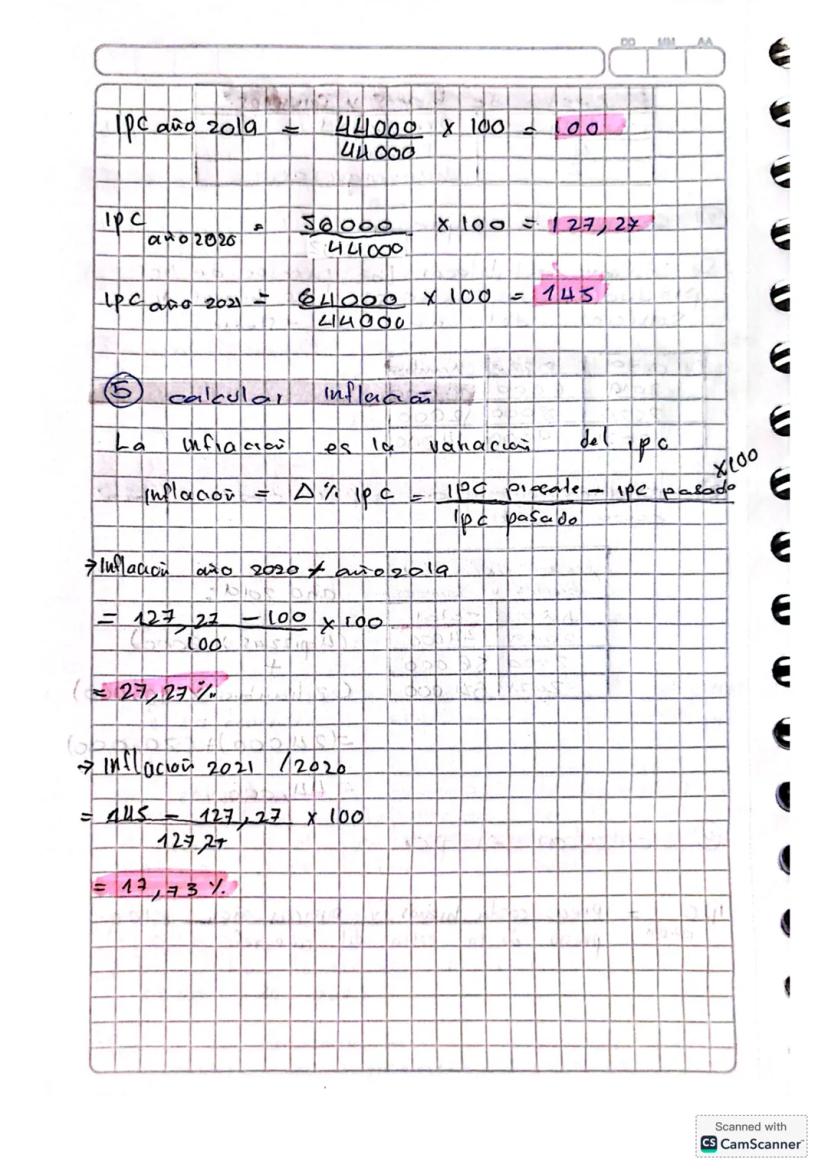 DD MM AA
IPC año 2019 = 44000 / 44000 x 100 = 100
IPC año 2020 = 56000 / 44000 x 100 = 127,27
IPC año 2021 = 64000 / 44000 x 100 = 145
⑤ calcular inflación
La inflación es la variación del ipc
inflación = Δ % ipc = ipc presente - ipc pasado / ipc pasado x100
→ Inflación año 2020 / año 2019
= 127,27 - 100 / 100 x 100
= 27,27 %
→ Inflación 2021 / 2020
= 145 - 127,27 / 127,27 x 100
= 17,73 %
Scanned with
CS CamScanner